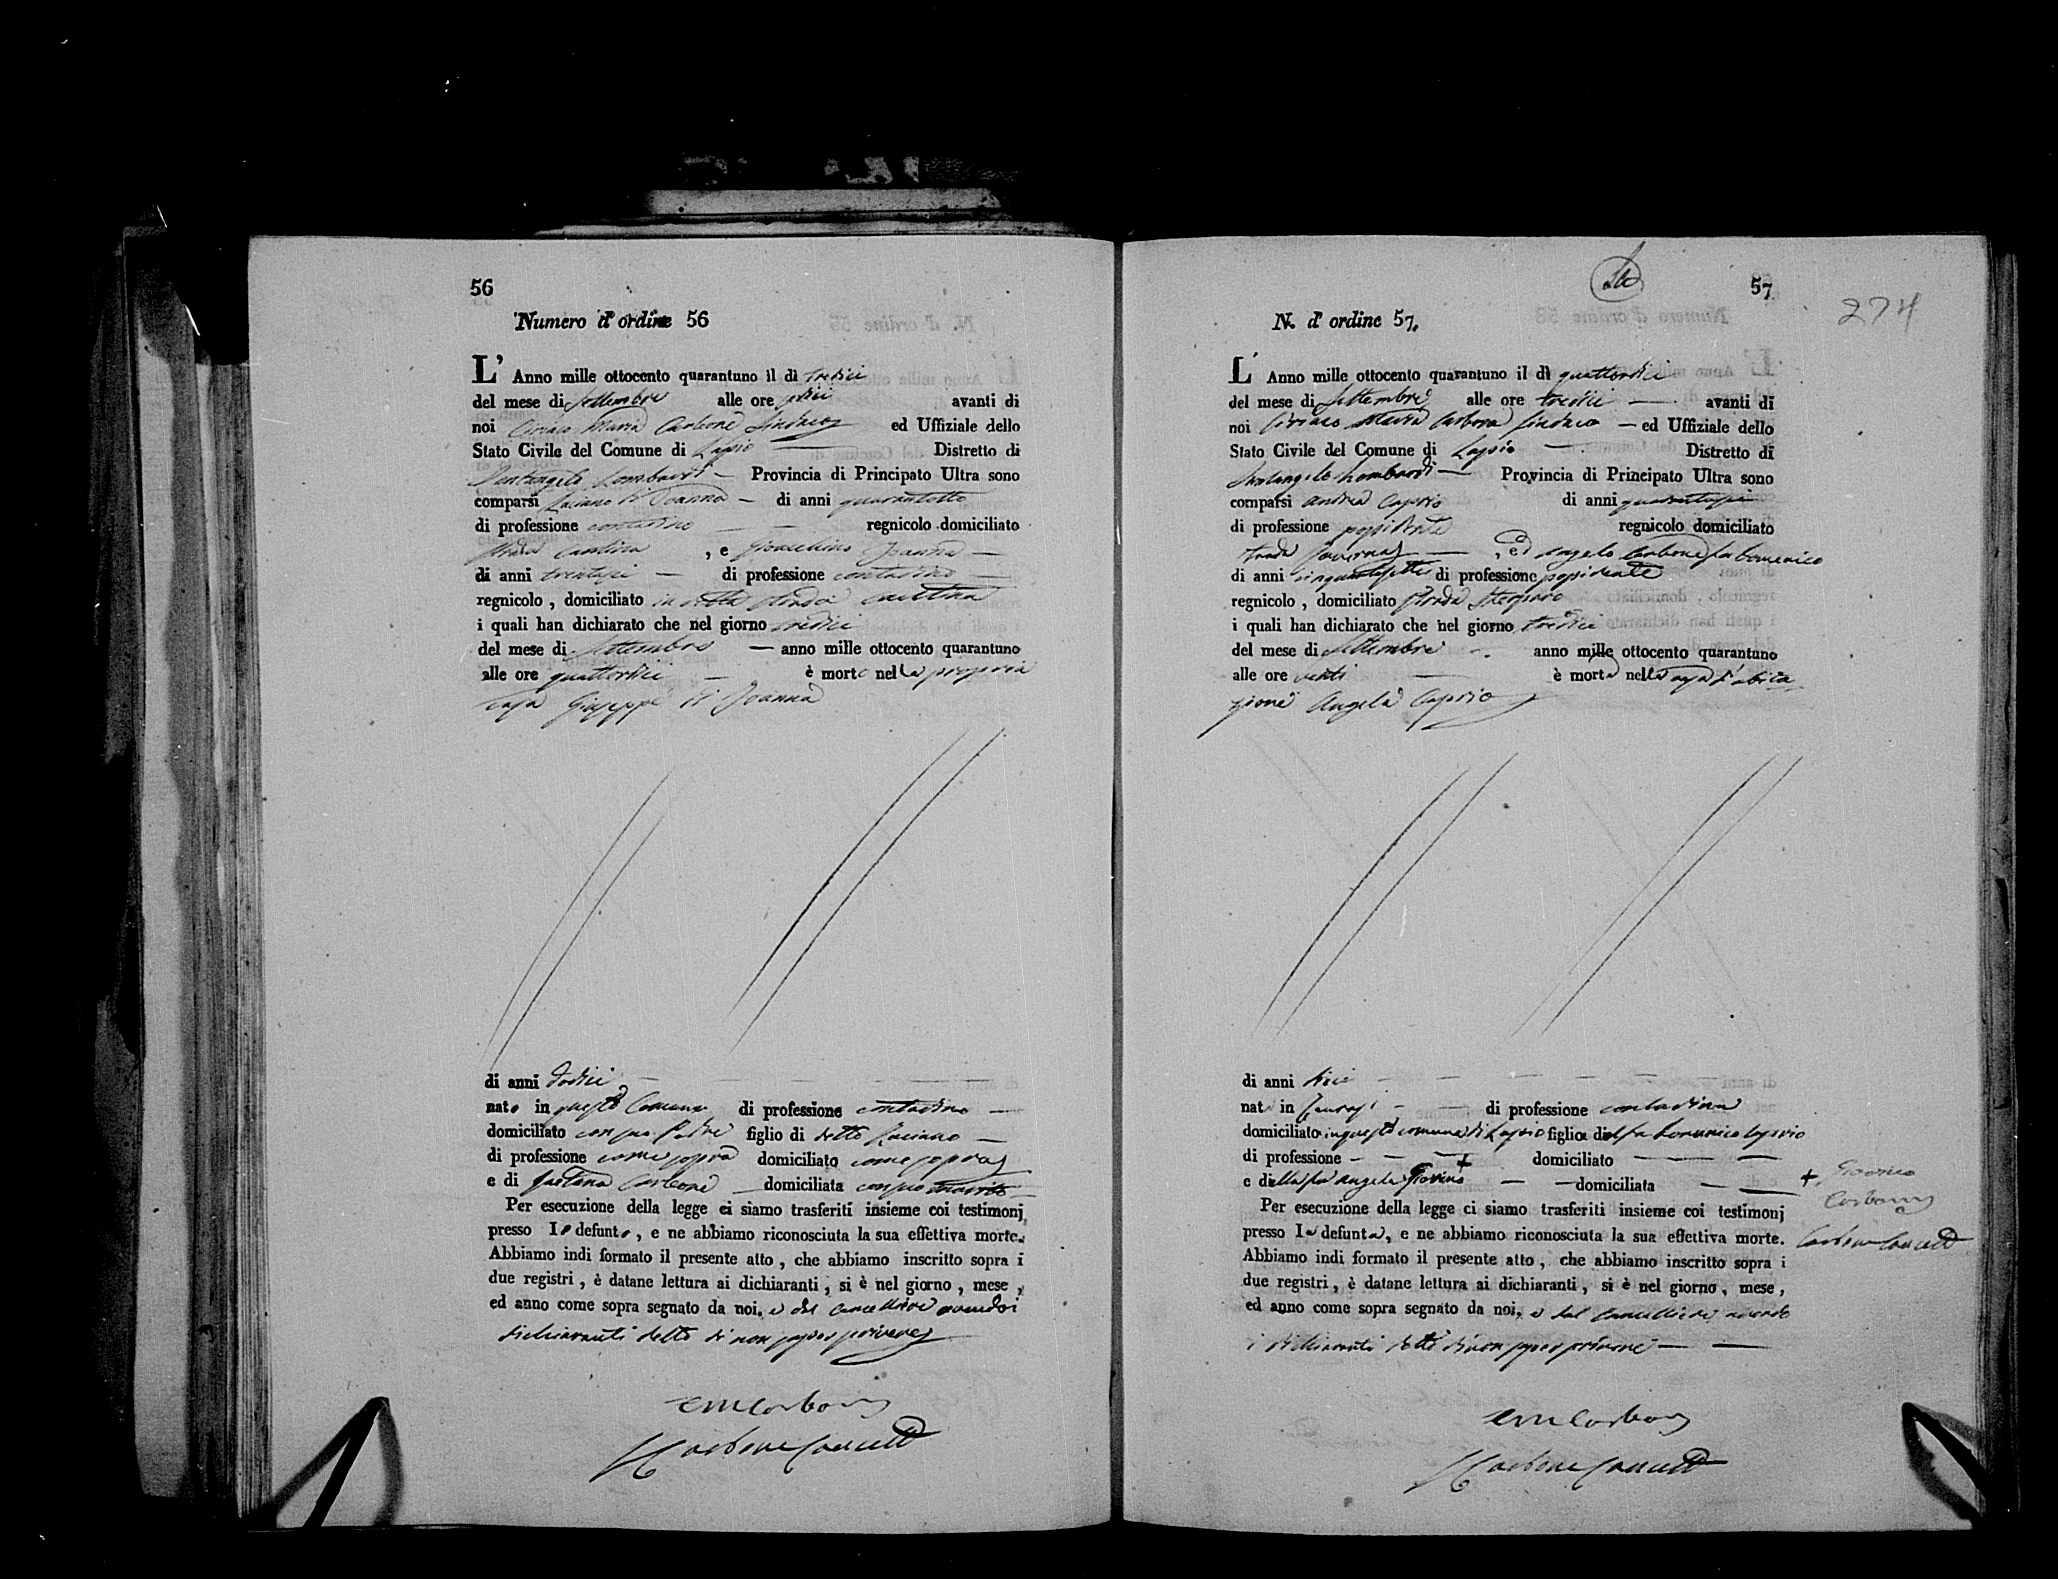 56
Numero d' ordine 56
L' Anno mille ottocento quarantuno il dì tredici
del mese di Settembre alle ore avanti di
noi Ciriaco Maria Carbone Sindaco ed Uffiziale dello
Stato Civile del Comune di Lapio Distretto di
Santangelo Lombardi Provincia di Principato Ultra sono
comparsi Luciano di Joanna di anni quarantotto
di professione contadino regnicolo domiciliato
strada Cantina , e Gioacchino Joanna
di anni trentasei di professione contadino
regnicolo , domiciliato in detta strada cantina
i quali han dichiarato che nel giorno tredici
del mese di Settembre anno mille ottocento quarantuno
alle ore quattordici è morto nella propria
casa Giuseppe di Joanna
di anni dodici
nato in questo Comune di professione contadino
domiciliato con suo Padre figlio di detto Luciano
di professione come sopra domiciliato come sopra
e di Gaetana Carbone domiciliata con suo marito
Per esecuzione della legge ci siamo trasferiti insieme coi testimonj
presso lo defunto, e ne abbiamo riconosciuta la sua effettiva morte.
Abbiamo indi formato il presente atto , che abbiamo inscritto sopra i
due registri , è datane lettura ai dichiaranti , si è nel giorno , mese ,
ed anno come sopra segnato da noi, e dal Cancelliere avendo i
dichiaranti detto di non saper scrivere
CMCarbone
Carbone Cancell
57
274
N. d' ordine 57.
L' Anno mille ottocento quarantuno il dì quattordici
del mese di Settembre alle ore tredici avanti di
noi Ciriaco Maria Carbone Sindaco ed Uffiziale dello
Stato Civile del Comune di Lapio Distretto di
Santangelo Lombardi Provincia di Principato Ultra sono
comparsi Andrea Caprio di anni quarantasei
di professione possidente regnicolo domiciliato
strada , ed Angelo Carbone fu Domenico
di anni cinquantasette di professione possidente
regnicolo , domiciliato strada
i quali han dichiarato che nel giorno tredici
del mese di Settembre anno mille ottocento quarantuno
alle ore venti è morta nella casa d'abita
zione Angela Caprio
di anni dieci
nat in Taurasi di professione contadina
domiciliato in questo comune di Lapio figlia del fu Domenico Caprio
di professione domiciliato
e della fu Angela Giovino + domiciliata
+ Giovino
Carbone
Carbone Cancell
Per esecuzione della legge ci siamo trasferiti insieme coi testimonj
presso la defunta, e ne abbiamo riconosciuta la sua effettiva morte.
Abbiamo indi formato il presente atto , che abbiamo inscritto sopra i
due registri , è datane lettura ai dichiaranti , si è nel giorno , mese ,
ed anno come sopra segnato da noi, e dal Cancelliere avendo
i dichiaranti detto di non saper scrivere
CMCarbone
Carbone Cancell